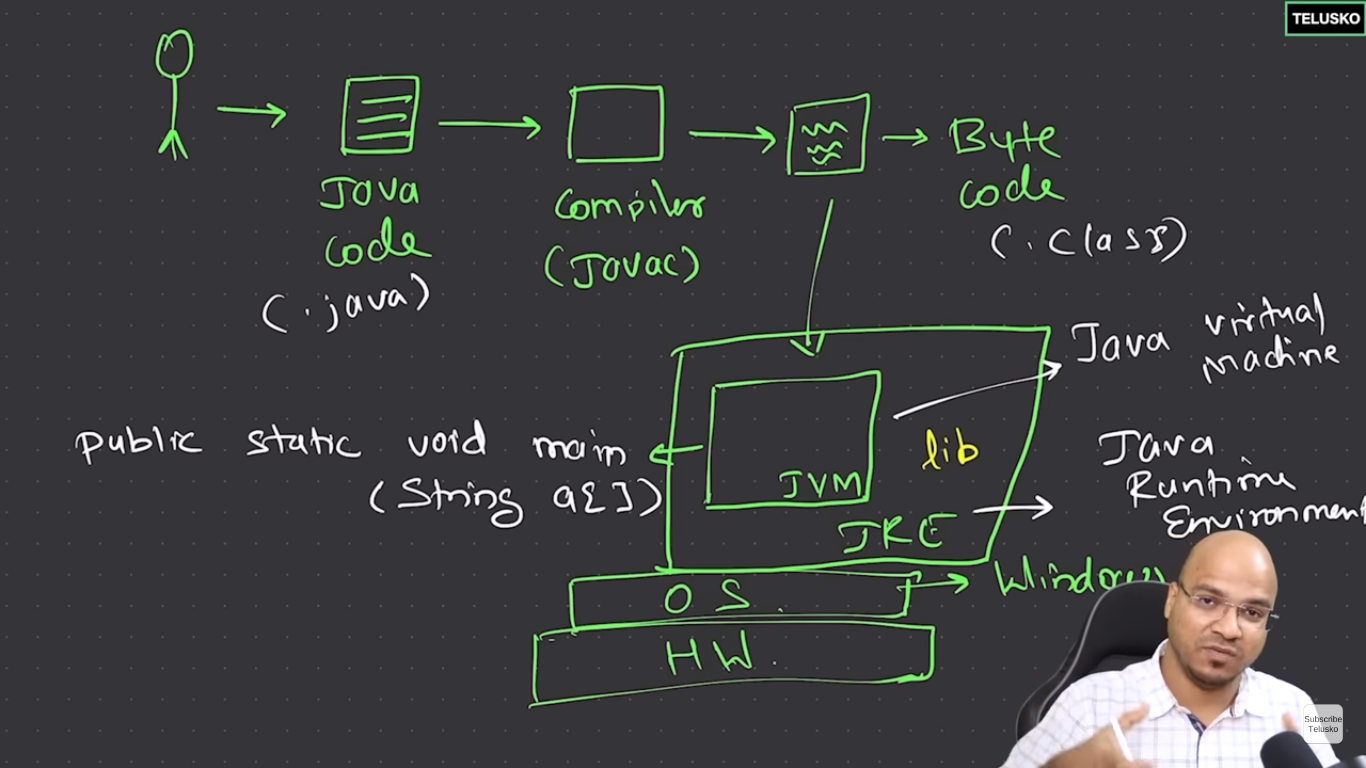 TELUSKO
Java
code
(.java)
Compiler
(Javac)
Byte
code
(.class)
Java virtual
machine
public static void main
(String a[])
lib
JVM
Java
Runtime
Environment
JRE
OS
Windows
HW
Subscribe
Telusko